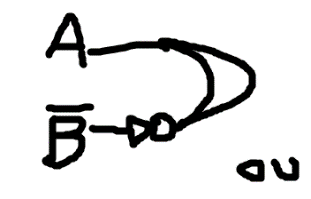 A
B̅
ou